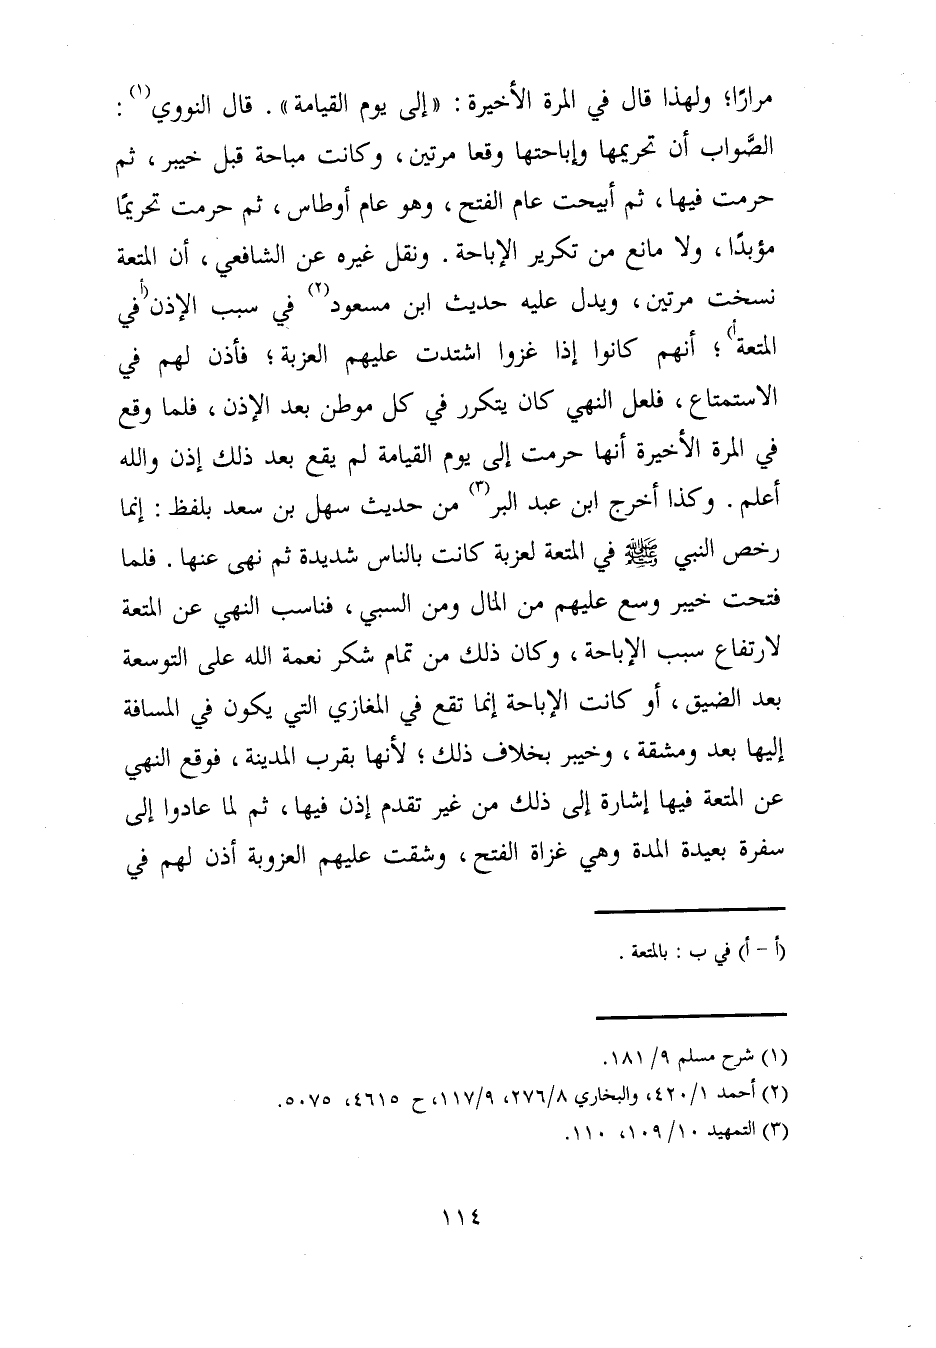 مرارًا؛ ولهذا قال في المرة الأخيرة : «إلى يوم القيامة» . قال النووي(١) :
الصَّواب أن تحريمها وإباحتها وقعا مرتين ، وكانت مباحة قبل خيبر ، ثم
حرمت فيها ، ثم أبيحت عام الفتح ، وهو عام أوطاس ، ثم حرمت تحريمًا
مؤبدًا ، ولا مانع من تكرير الإباحة . ونقل غيره عن الشافعي ، أن المتعة
نسخت مرتين ، ويدل عليه حديث ابن مسعود(٢) في سبب الإذن (أ في
المتعة أ) ؛ أنهم كانوا إذا غزوا اشتدت عليهم العزبة ؛ فأذن لهم في
الاستمتاع ، فلعل النهي كان يتكرر في كل موطن بعد الإذن ، فلما وقع
في المرة الأخيرة أنها حرمت إلى يوم القيامة لم يقع بعد ذلك إذن والله
أعلم . وكذا أخرج ابن عبد البر(٣) من حديث سهل بن سعد بلفظ : إنما
رخص النبي ﷺ في المتعة لعزبة كانت بالناس شديدة ثم نهى عنها . فلما
فتحت خيبر وسع عليهم من المال ومن السبي ، فناسب النهي عن المتعة
لارتفاع سبب الإباحة ، وكان ذلك من تمام شكر نعمة الله على التوسعة
بعد الضيق ، أو كانت الإباحة إنما تقع في المغازي التي يكون في المسافة
إليها بعد ومشقة ، وخيبر بخلاف ذلك ؛ لأنها بقرب المدينة ، فوقع النهي
عن المتعة فيها إشارة إلى ذلك من غير تقدم إذن فيها ، ثم لما عادوا إلى
سفرة بعيدة المدة وهي غزاة الفتح ، وشقت عليهم العزوبة أذن لهم في
(أ - أ) في ب : بالمتعة .
(١) شرح مسلم ٩/ ١٨١.
(٢) أحمد ١/ ٤٢٠، والبخاري ٨/ ٢٧٦، ٩/ ١١٧، ح ٤٦١٥، ٥٠٧٥.
(٣) التمهيد ١٠/ ١٠٩، ١١٠.
١١٤